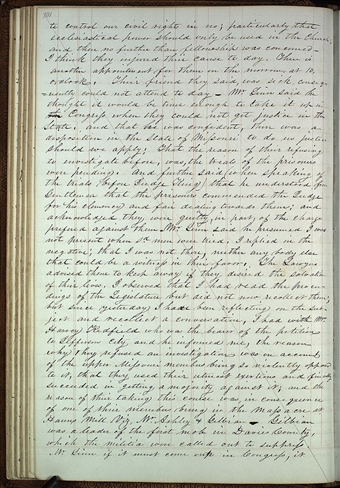 to control our civil right in no; particularly that
ecclesiastical power should only be used in the Church,
and then no further than fellowship was concerned-
I think they injured their cause to day. There is
another appointment for them in the morning at 10
oclock. Their friend they said was sick conse-
quently could not attend to day - Mr. Linn said he
thought it would be time enough to take it up in
Congress when they could not get justice in the
State, and that he was confident, there was a
disposition in the State of Missouri to do us justice
should we apply; That the reason of their refusing
to investigate before, was, the trials of the prisoners
were pending. And further said (when speaking of
the trials before Judge King) that he understood from
Gentlemen that the prisoners commended the Judge
for his clemency and fair dealing towards them, and
acknowledged they were guilty, in part, of the charge
prefered against them. Mr. Linn said he presumed I was
not present when sd. men were tried. I replied in the
negative, that I was not there, neither any body else
that could be a witness in their favor; The Lawyers
advised them to keep away if they desired the
of their lives. I observed that I had read the procee-
dings of the Legislature but did not now recollect them,
but since yesterday, I had been reflecting on the sub-
ject and recollect a conversation, I had with Mr.
Harvey Redfield who was the bearer of the petition
to Jefferson City, and he informed me, the reason
why they refused an investigation was on account
of the upper Missouri members being so violently oppos'd
to it, that they used their utmost exertion and finally
succeeded in getting a majority against it; and the
reason of their taking this course was in consequence
of one of their members being in the Massacre at
Hauns Mill Viz. Mr. Ashley & Gillium - Gillium
was a leader of the first mob in Daviess County,
which the militia were called out to suppress,
Mr Linn if it must come up in Congress, it